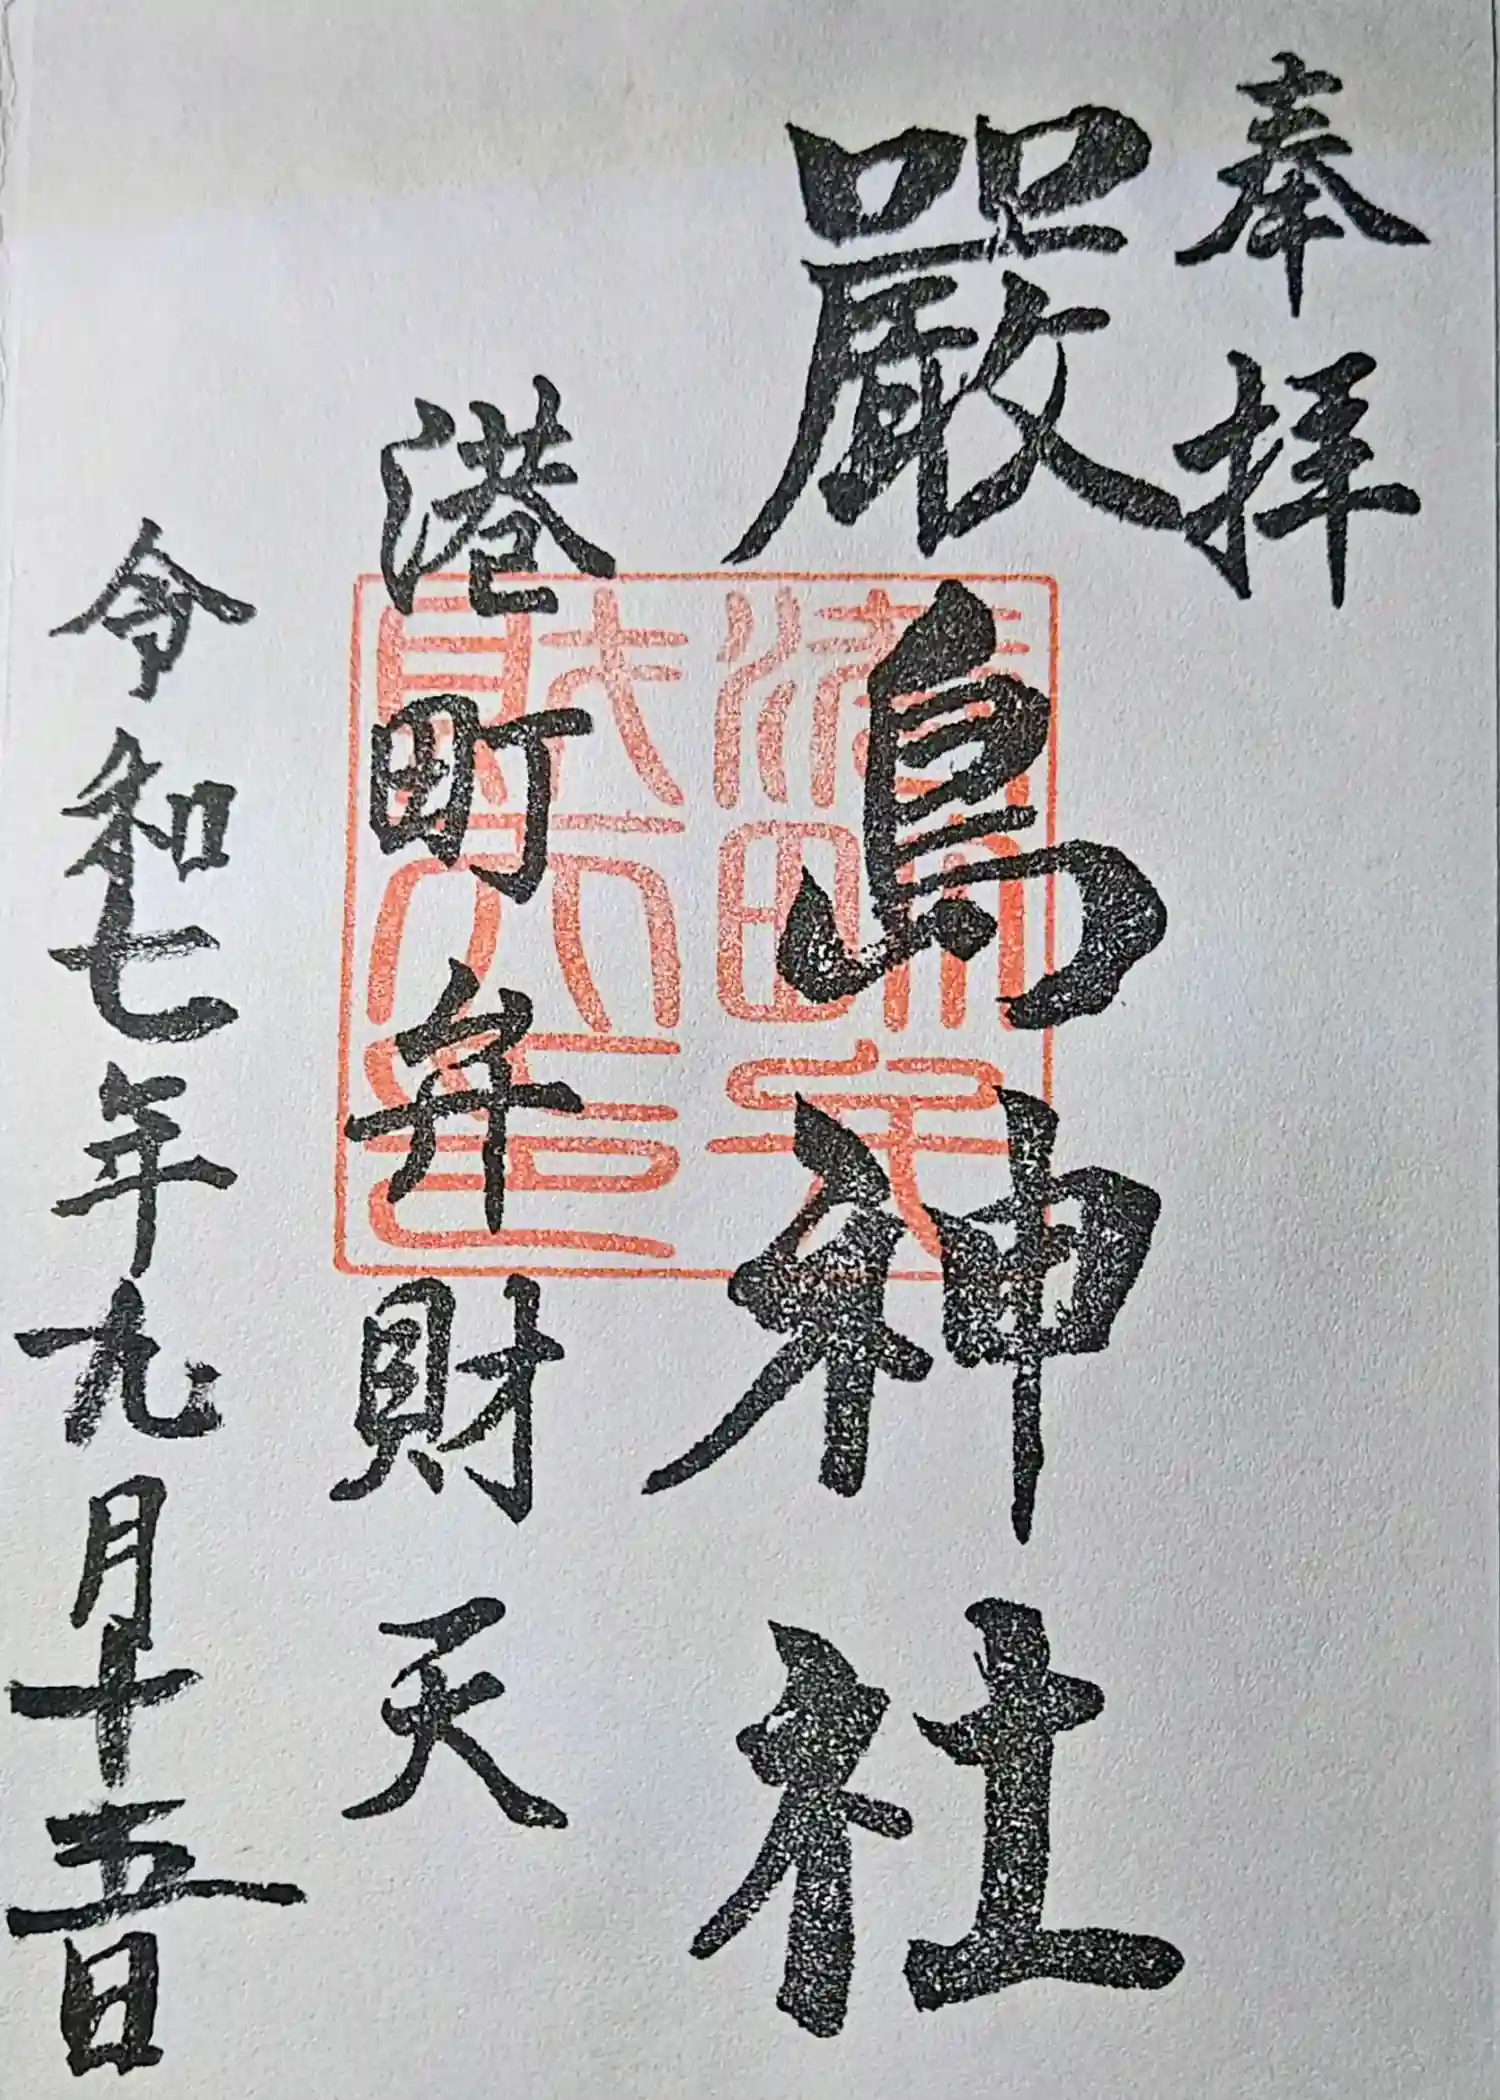 奉拝
嚴島神社
港町弁財天
令和七年九月十五日